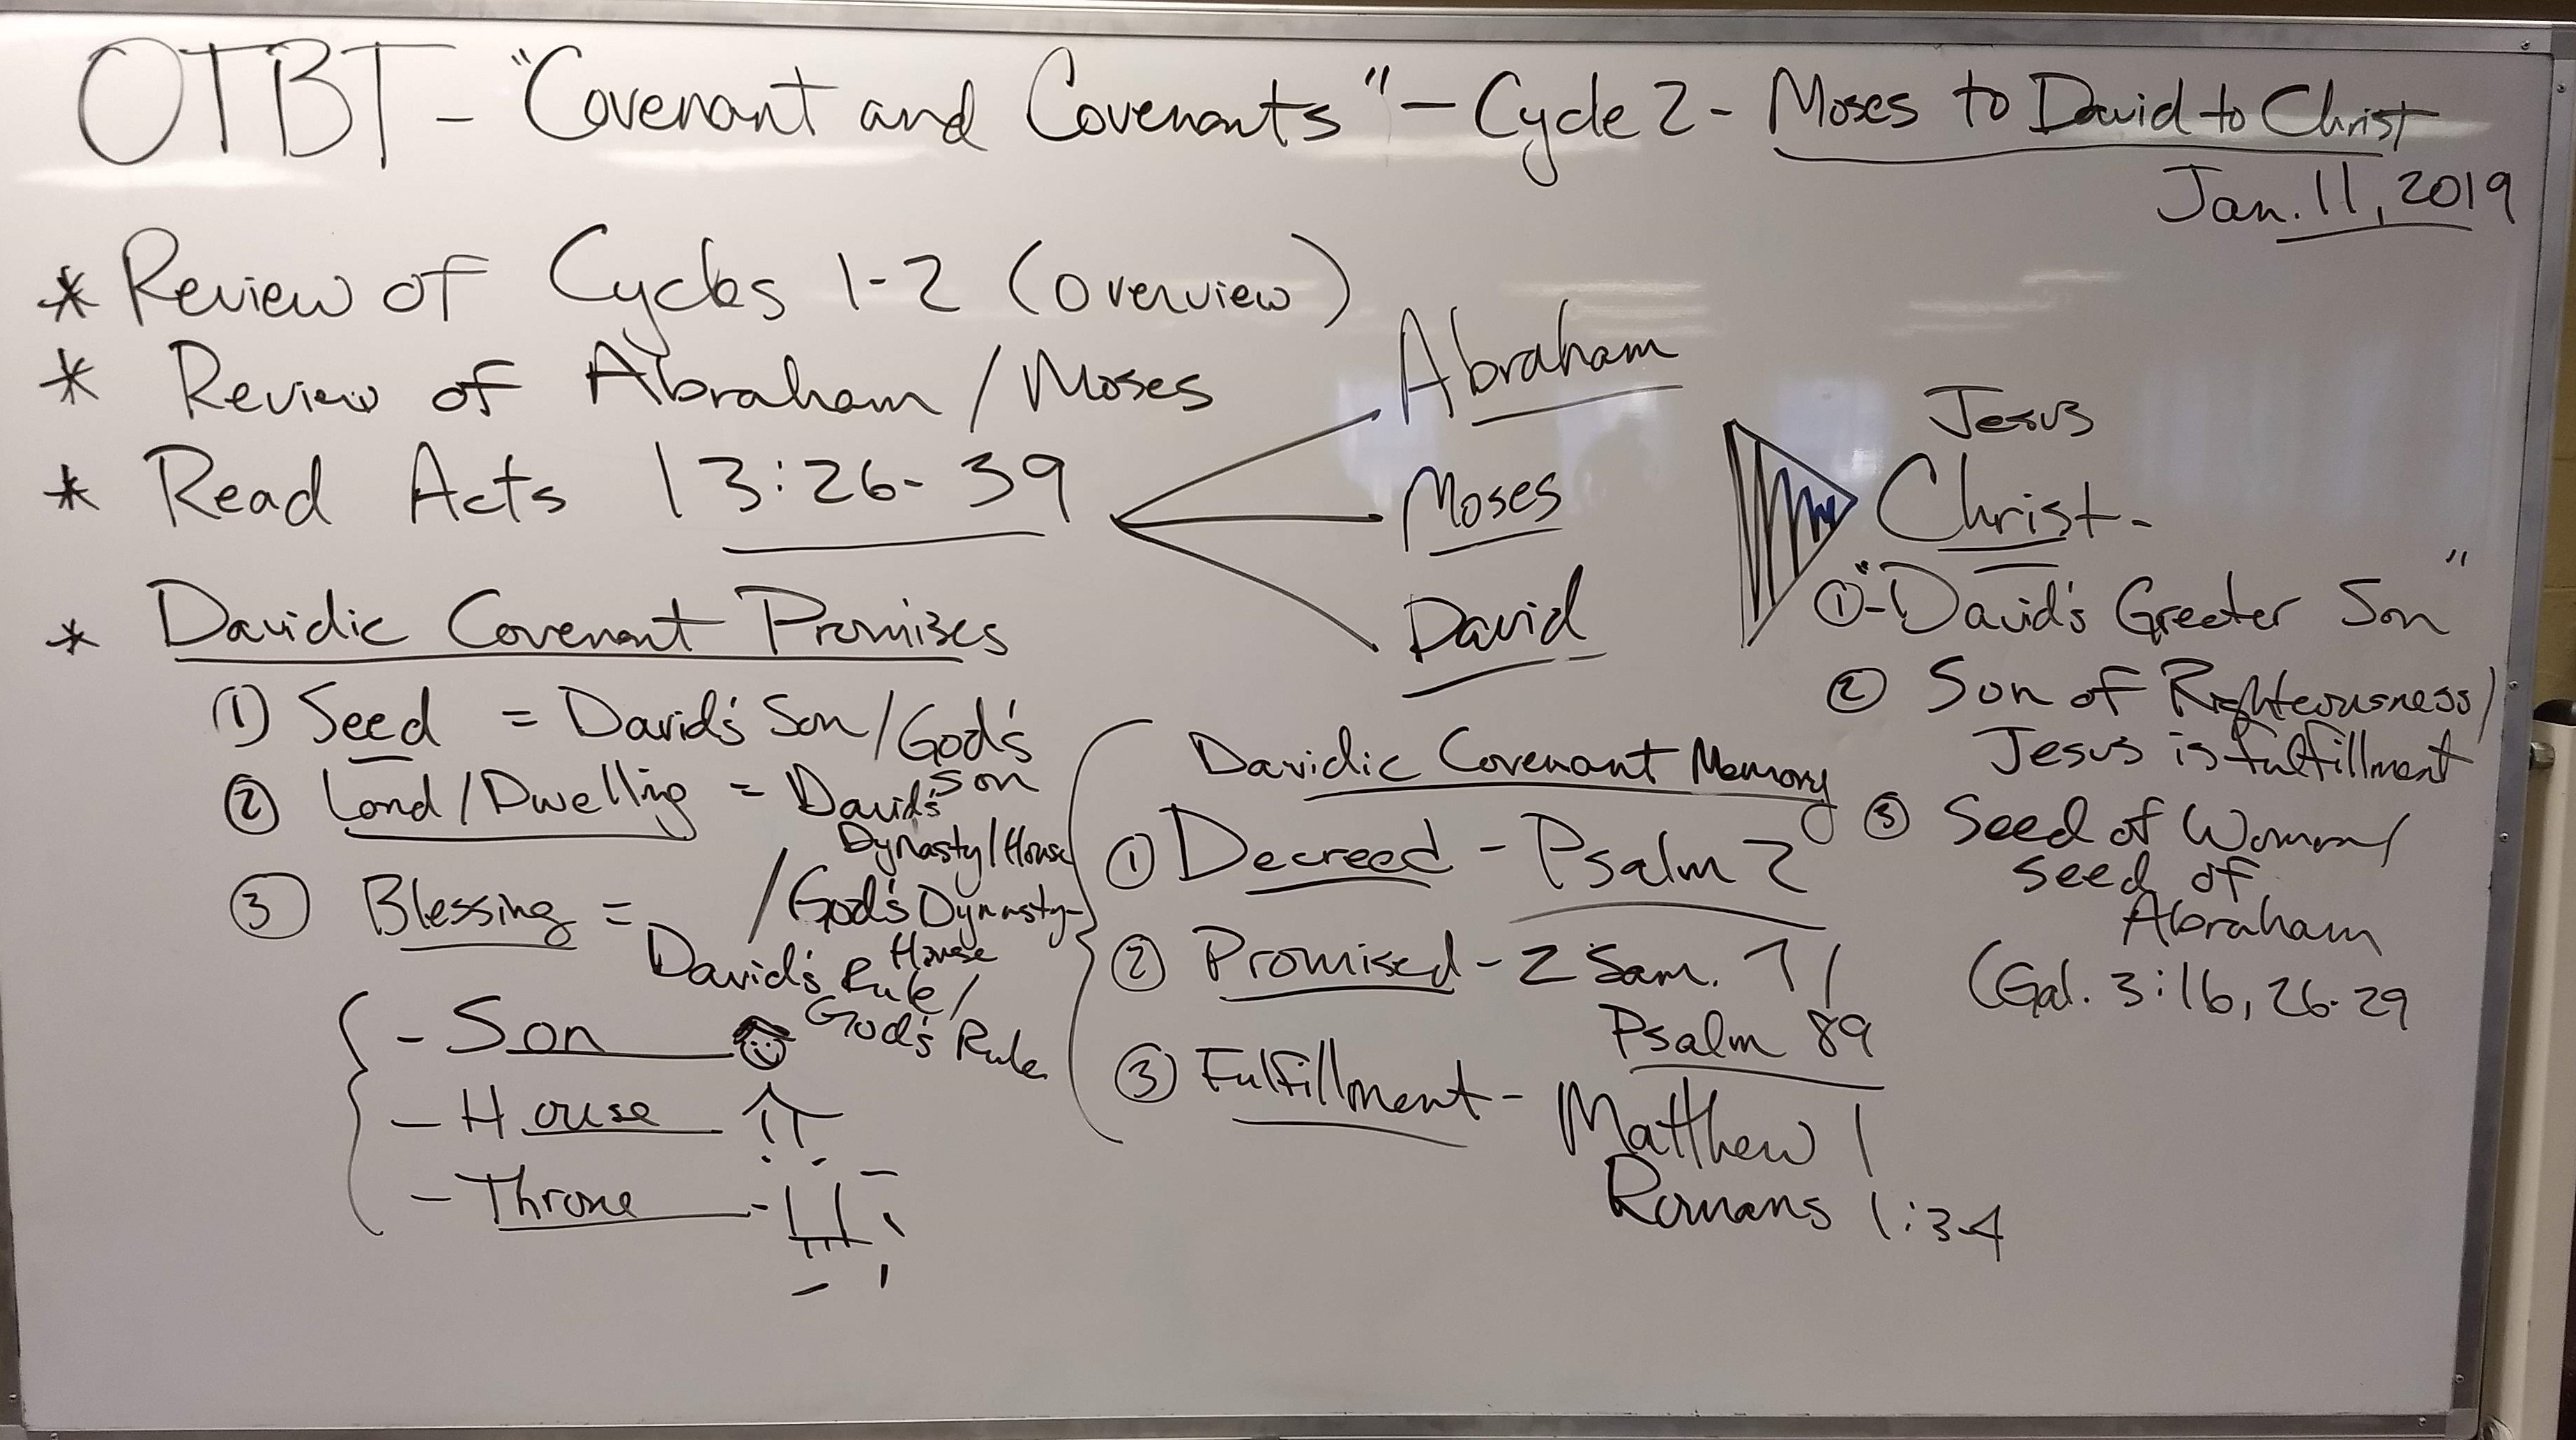 OTBT - "Covenant and Covenants" - Cycle 2 - Moses to David to Christ
Jan. 11, 2019
* Review of Cycles 1-2 (overview)
* Review of Abraham / Moses
* Read Acts 13:26-39
Abraham
Moses
David
Jesus
Christ -
① - "David's Greater Son"
② Son of Righteousness /
Jesus is fulfillment
③ Seed of Woman /
seed of
Abraham
(Gal. 3:16, 26-29
* Davidic Covenant Promises
① Seed = David's Son / God's
Son
② Land / Dwelling = David's
Dynasty / House
/ God's Dynasty -
House
③ Blessing =
David's Rule /
God's Rule
- Son
- House
- Throne -
Davidic Covenant Memory
① Decreed - Psalm 2
② Promised - 2 Sam. 7 /
Psalm 89
③ Fulfillment - Matthew 1
Romans 1:3-4